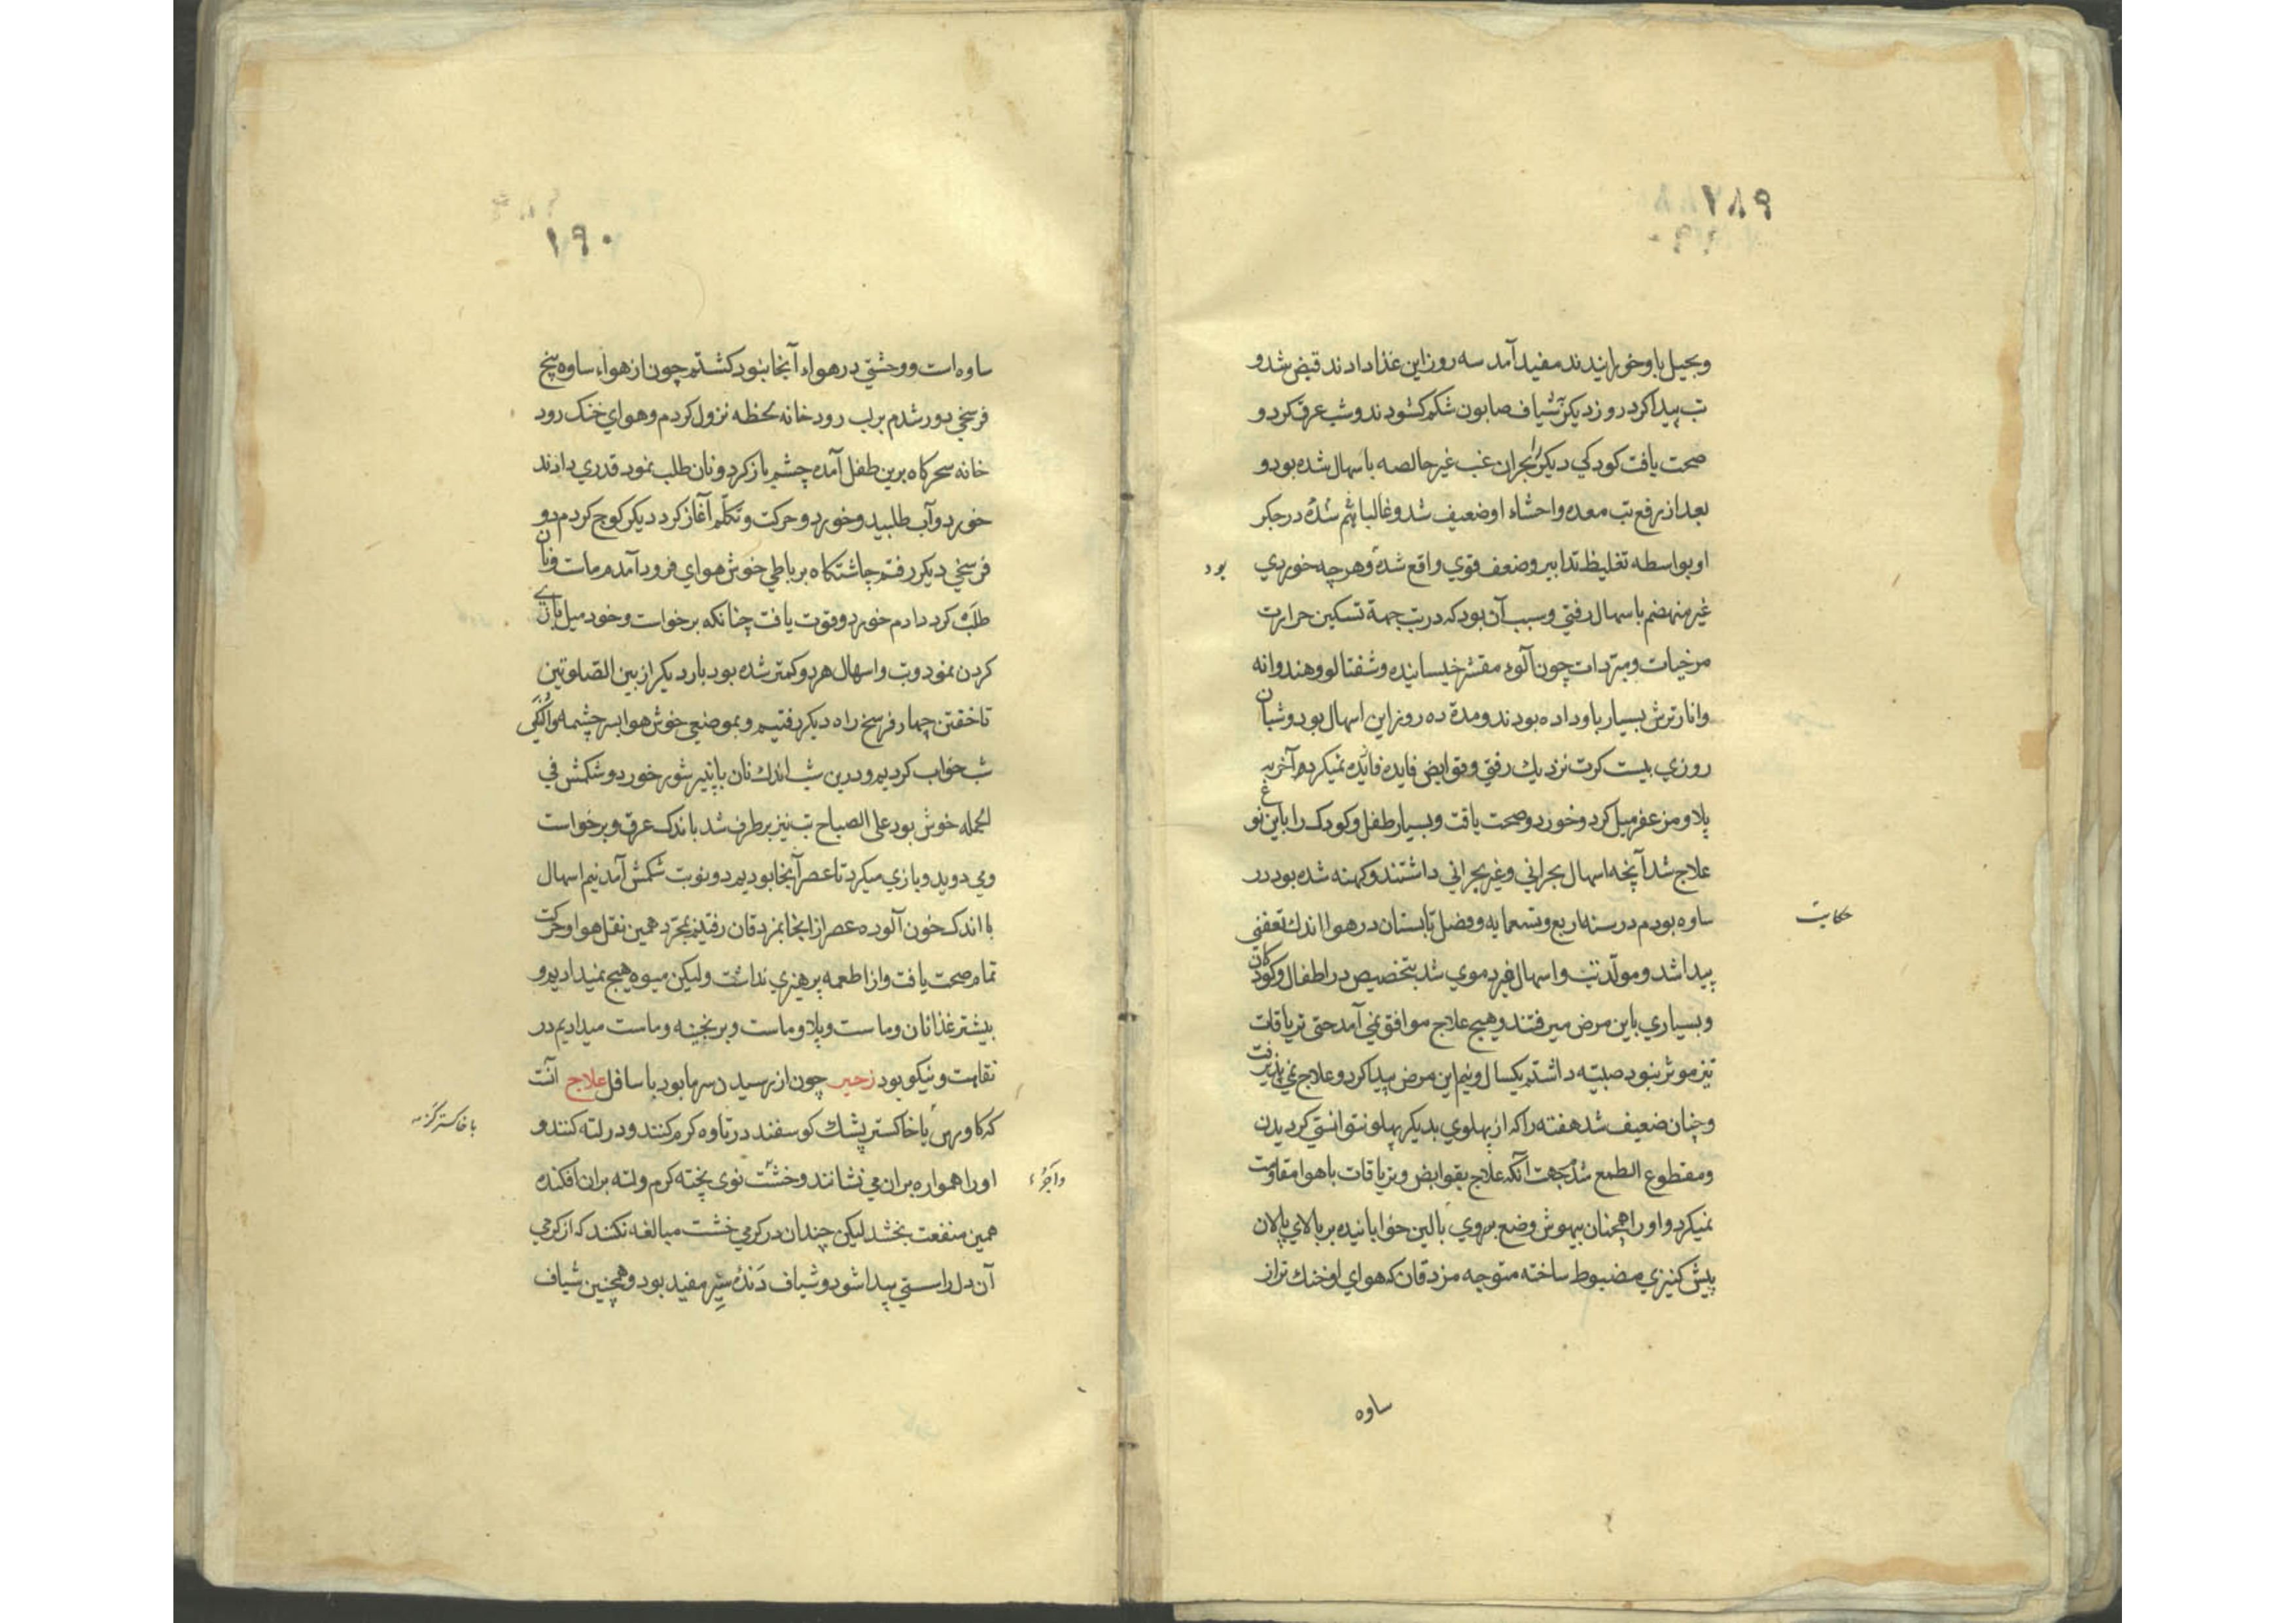 ۱۸۹
وبحیل باو خورانیدند مفید آمد سه روز این غذا دادند قبض شد و
تب پیدا کرد روز دیگر بشیاف صابون شکم کشودند و شب عرق کرد و
صحت یافت کودکی دیگر را بحران غب غیر خالصه باسهال شده بود و
بعد از رفع تب معده و احشاء او ضعیف شد و غالبا در جکر
او بواسطه تغلیظ تدابیر وضعف قوی واقع شده و هرچه خوردی
بود
غیر منهضم باسهال رفتی و سبب آن بود که در تب جهة تسکین حرارت
مرخیات و مبردات چون آلوء مقشر خیسانیده و شفتالو و هندوانه
و انار ترش بسیار باو داده بودند و مدة ده روز این اسهال بود و شبان
روزی بیست کرت نزدیك رفتی و قوابض فایده فایده نمیکرد آخر به
پلاو مزعفر میل کرد و خورد و صحت یافت و بسیار طفل و کودک را باین نوع
علاج شد آنچه اسهال بحرانی و غیر بحرانی داشتند و کهنه شده بود در
حکایت
ساوه بودم در سنه اربع و تسعمایه و فصل تابستان در هوا اندك تعفنی
پیدا شد و مولد تب و اسهال غیر دموی شد بتخصیص در اطفال و کودکان
و بسیاری باین مرض میرفتند و هیچ علاج موافق نمی آمد حتی تریاقات
نیز موثر نبود صبیه داشتم یکسال و نیم این مرض پیدا کرد و علاج نمی پذیرفت
و چنان ضعیف شد هفته را که از پهلوی بدیکر پهلو نتوانستی کردیدن
و مقطوع الطمع شد بجهت آنکه علاج بقوابض و تریاقات باهوا مقاومت
نمیکرد و او را همچنان بیهوش وضع بروی بالین خوابانیده بر بالای پالان
پیش کنیزی مضبوط ساخته متوجه مزدقان که هوای او خنك تر از
ساوه
۱۹۰
ساوه است و وحشتی در هواء آنجا نبود کشتم چون از هواء ساوه پنج
فرسخی دور شدم برلب رود خانه لحظه نزول کردم و هوای خنک رود
خانه سحرکاه برین طفل آمده چشم باز کرد و نان طلب نمود قدری دادند
خورد و آب طلبید و خورد و حرکت و تکلم آغاز کرد دیکر کوچ کردم دو
فرسخی دیکر رفتم چاشتکاه بر باطی خوش هوای فرود آمدم مات و نان
طلب کرد دادم خورد و قوت یافت چنانکه برخواست و خود میل بازی
کردن نمود و تب و اسهال هر دو کمتر شده بود بار دیکر از بین الصلوتین
تا خفتن چهار فرسخ راه دیکر رفتیم و بموضعی خوش هوا بسر چشمه
شب خواب کردیم و درین شب اندك نان با پنیر شور خورد و شکمش فی
الجمله خوش بود علی الصباح تب نیز بر طرف شد باندک عرق و برخواست
و می دوید و بازی میکرد تا عصر آنجا بودیم دو نوبت شکمش آمد نیم اسهال
با اندک خون آلوده عصر از انجا بمزدقان رفتیم بمجرد همین نقل هوا و حرکت
تمام صحت یافت و از اطعمه پرهیزی نداشت ولیکن میوه هیچ نمیدادیم و
بیشتر غذا نان و ماست و پلاو ماست و برنجینه و ماست میدادیم در
نقاهت و نیکو بود زحیر چون از رسیدن سرما بود با سافل علاج آنست
که کاورس یا خاکستر پشك کوسفند در تاوه کرم کنند و در لته کنند و
او را همواره بران می نشانند و خشت نوی پخته کرم و لته بران افکنده
همین منفعت بخشد لیکن چندان در کرمی خشت مبالغه نکنند که از کرمی
آن دل را سستی پیدا شود و شیاف دنده شیر مفید بود و همچنین شیاف